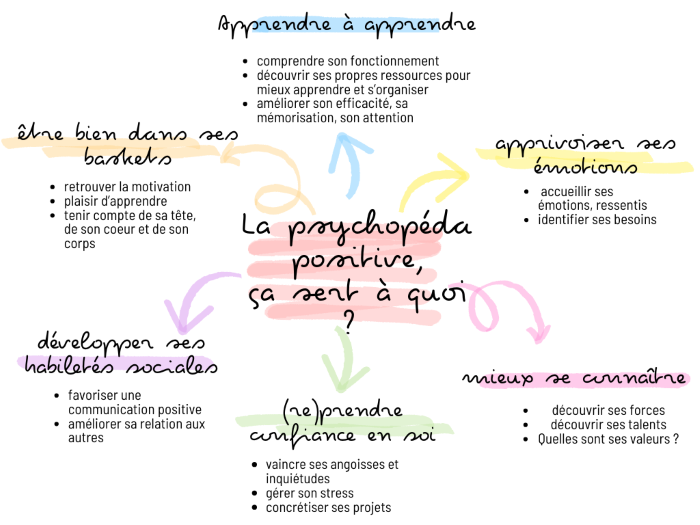 Apprendre à apprendre
• comprendre son fonctionnement
• découvrir ses propres ressources pour
mieux apprendre et s'organiser
• améliorer son efficacité, sa
mémorisation, son attention
être bien dans ses
baskets
• retrouver la motivation
• plaisir d'apprendre
• tenir compte de sa tête,
de son coeur et de son
corps
apprivoiser ses
émotions
• accueillir ses
émotions, ressentis
• identifier ses besoins
La psychopéda
positive,
ça sert à quoi
?
développer ses
habiletés sociales
• favoriser une
communication positive
• améliorer sa relation aux
autres
(re)prendre
confiance en soi
• vaincre ses angoisses et
inquiétudes
• gérer son stress
• concrétiser ses projets
mieux se connaître
• découvrir ses forces
• découvrir ses talents
• Quelles sont ses valeurs ?